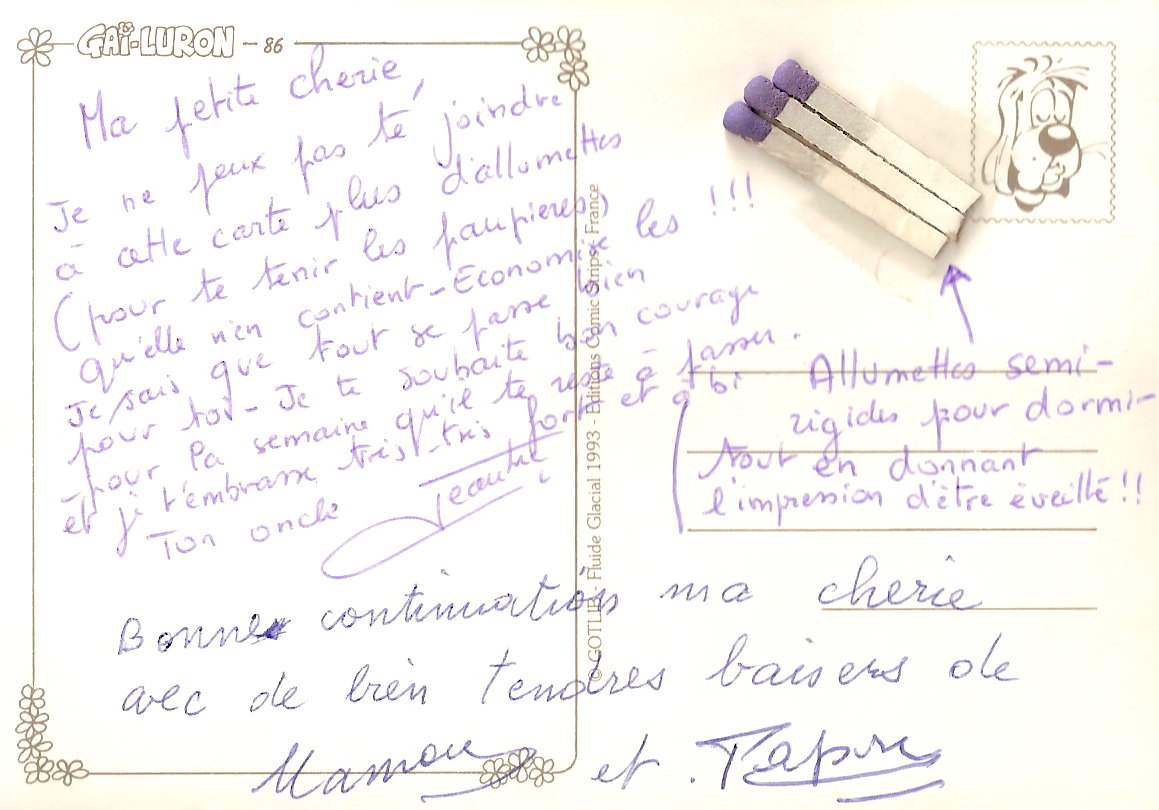 GAI-LURON - 86
Ma petite cherie,
Je ne peux pas te joindre
à cette carte plus d'allumettes
(pour te tenir les paupieres)
qu'elle n'en contient - Economise les !!!
Je sais que tout se passe bien
pour toi - Je te souhaite bon courage
pour la semaine qu'il te reste à passer.
et je t'embrasse très très fort et à bi
Ton oncle
Allumettes semi-
rigides pour dormir
tout en donnant
l'impression d'être éveillé !!
© GOTLIB - Fluide Glacial 1993 - Editions Comic Strips - France
Bonne continuation ma cherie
avec de bien tendres baisers de
Mamou et Papou